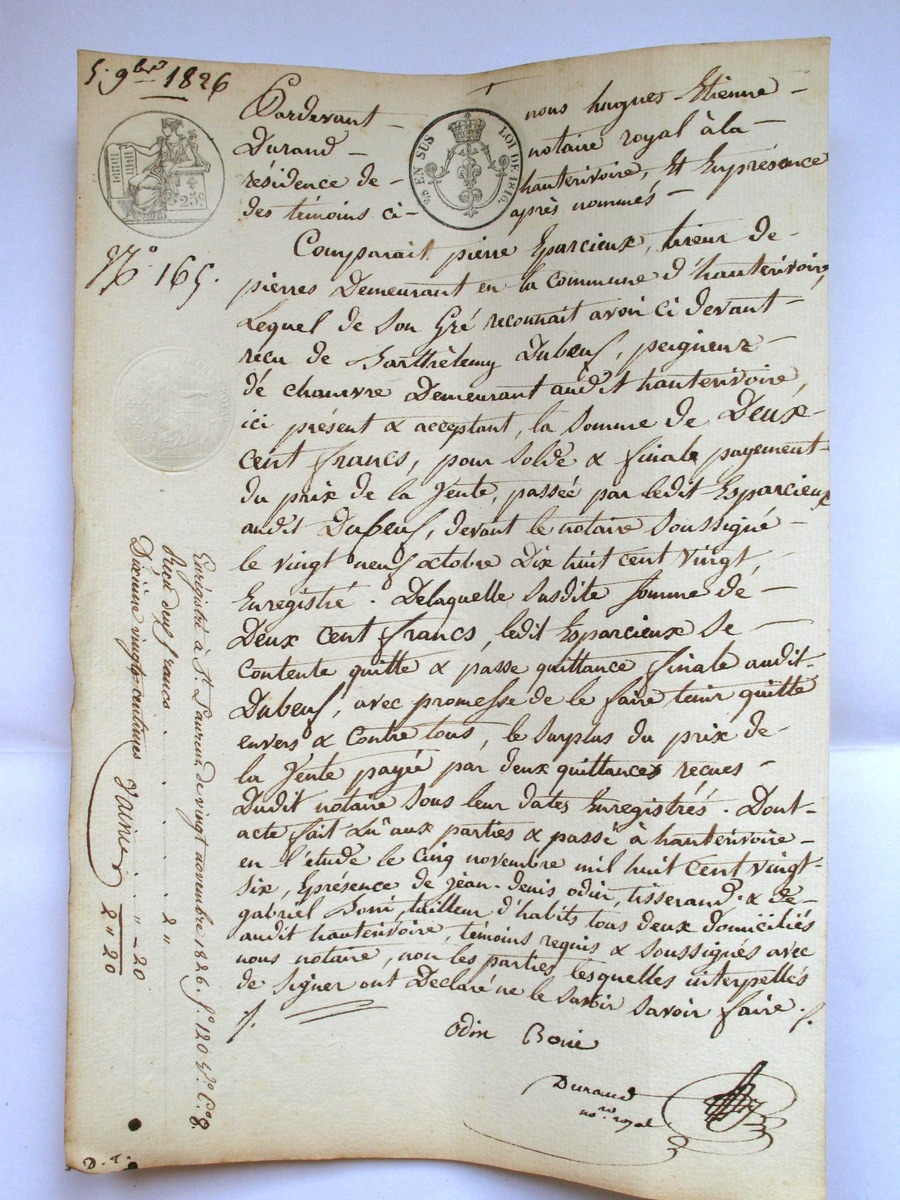 5. 9bre 1826
Pardevant — nous hugues Etienne —
Durand — notaire royal à la —
résidence de — hauterivoire, Et Enprésence
des témoins ci — après nommés —
EN SUS LOI DE 1816.
25c
N.º 165.
Comparait pierre Eparcieux, tireur de —
pierres Demeurant en la Commune d'hauterivoire,
Lequel de Son Gré reconnait avoir ci devant —
reçu de Barthèlemy Dubeuf, peigneur —
dé chanvre Demeurant audit hauterivoire,
ici présent & acceptant, la Somme de Deux
cent francs, pour Solde & finale payement
du prix de la Vente, passée par ledit Esparcieux
audit Dubeuf, devant le notaire Soussigné —
le vingt neuf octobre Dix huit cent vingt, —
Enregistré. Delaquelle Susdite Somme dé —
Deux cent francs, ledit Esparcieux Se —
Contente quitte & passe quittance finale audit
Dubeuf, avec promesse de le faire tenir quitte
envers & Contre tous, le Surplus du prix de —
la Vente payée par deux quittances recues —
Dudit notaire Sous leur dates Enregistrés. Dont —
acte fait Lu aux parties & passé à hauterivoire —
en l'étude le Cinq novembre mil huit cent vingt-
six, Eprésence de jean-denis odin, tisserand & de
gabriel Borri, tailleur d'habits tous deux domiciliés
audit hauterivoire, témoins requis & Soussignés avec
nous notaire, non les parties lesquelles interpellés
de Signer ont Déclaré ne le Savoir Savoir faire.
Odin Borie
Durand
no.re royal
Enrégistré à St Laurent de vingt novembre 1826. fo 120 Vo Co 8.
Reçu deux francs . . . . 2 "
Dixième vingt centimes . . " - 20
2 " 20
D. t.